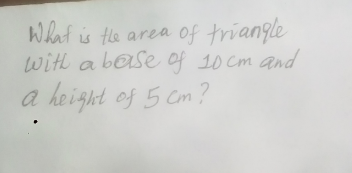 What is the area of triangle
with a base of 10 cm and
a height of 5 cm?